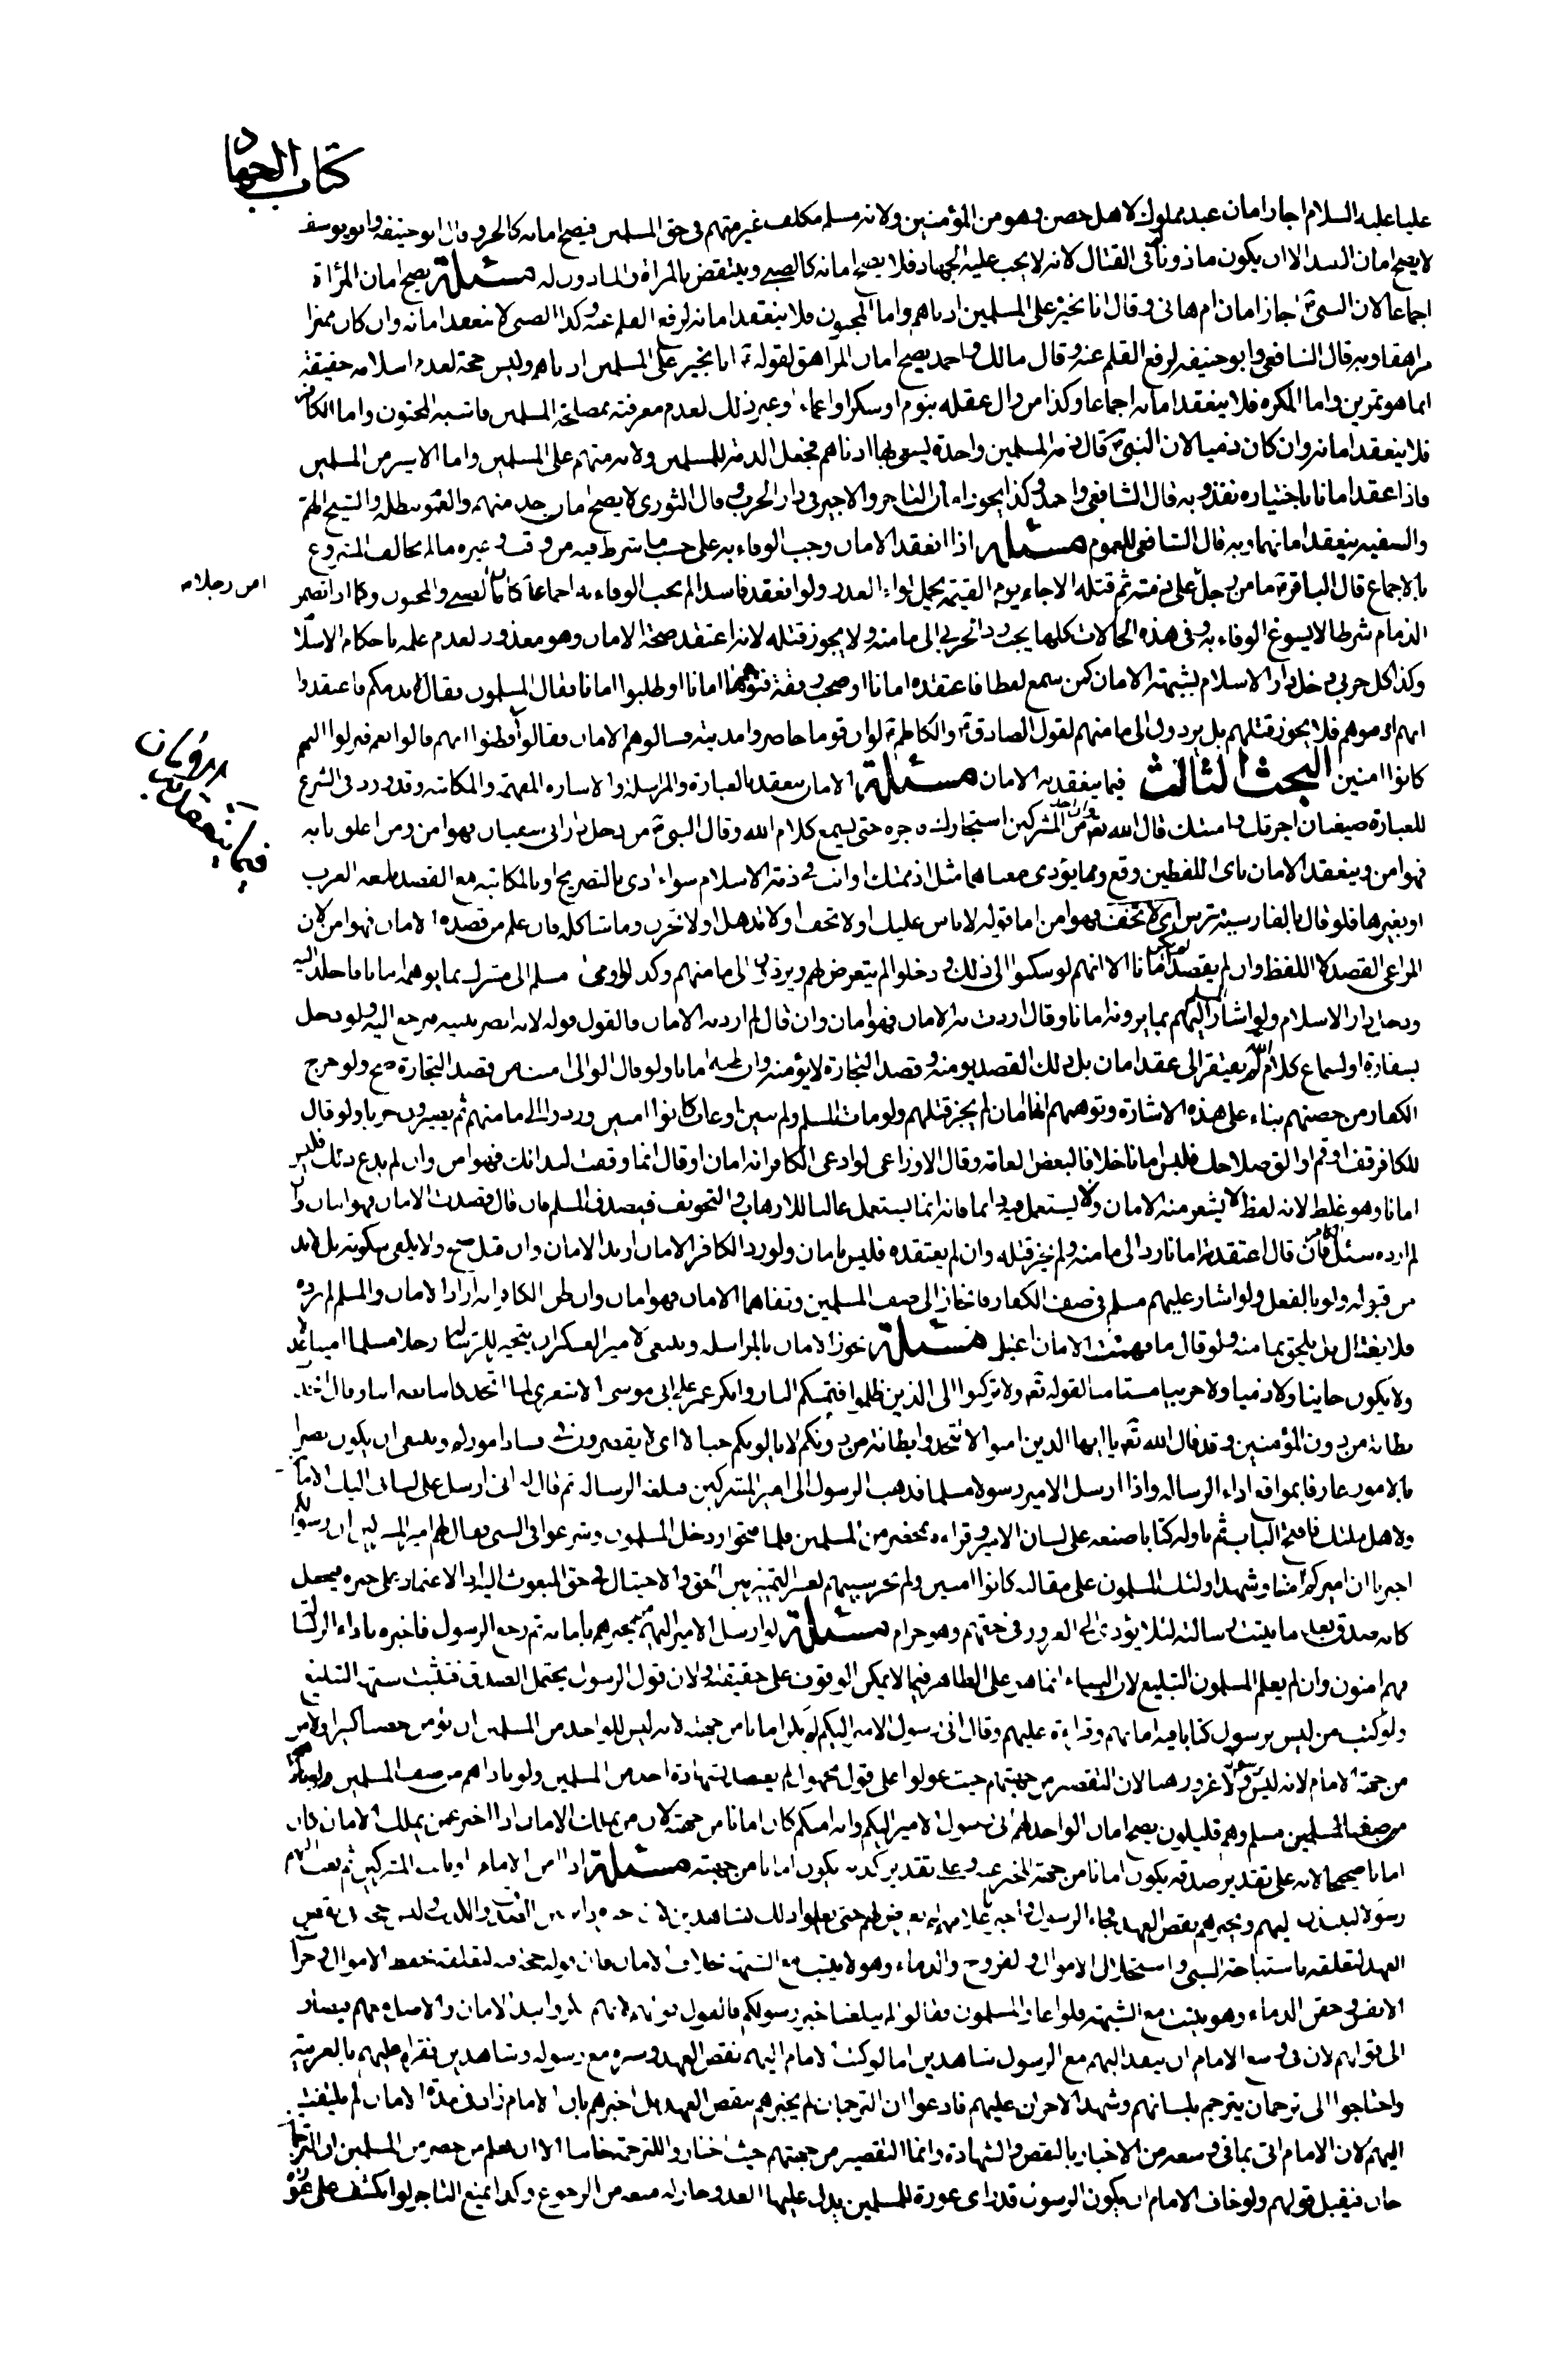 كتاب الجهاد
عليا عليه السلام اجاز امان عبد مملوك لاهل حصن وهو من المؤمنين ولانه مسلم مكلف غير متهم في حق المسلمين فيصح امانه كالحر وقال ابو حنيفه وابو يوسف
لا يصح امان العبد الا ان يكون ماذونا في القتال لانه لا يجب عليه الجهاد فلا يصح امانه كالصبي وينتقض بالمراة والماذون له مسئلة يصح امان المرأة
اجماعا لان النبي ص اجاز امان ام هاني وقال انما يجير على المسلمين ادناهم واما المجنون فلا ينعقد امانه لرفع القلم عنه وكذا الصبي لا ينعقد امانه وان كان مميزا
مراهقا وبه قال الشافعي وابو حنيفه لرفع القلم عنه وقال مالك واحمد يصح امان المراهق لقوله ع انما يجير على المسلمين ادناهم وليس حجة لعدم اسلامه حقيقة
انما هو تمرين واما المكره فلا ينعقد امانه اجماعا وكذا من زال عقله بنوم او سكر او اغماء او غير ذلك لعدم معرفته بمصلحة المسلمين فاشبه المجنون واما الكافر
فلا ينعقد امانه وان كان ذميا لان النبي ص قال ذمة المسلمين واحدة يسعى بها ادناهم فجعل الذمة للمسلمين ولانه متهم على المسلمين واما الاسير من المسلمين
فاذا عقد امانا باختياره نفذ وبه قال الشافعي واحمد وكذا يجوز امان التاجر والاجير في دار الحرب وقال الثوري لا يصح امان احد منهم والشيخ الهم
والسفيه ينعقد امانهما وبه قال الشافعي للعموم مسئلة اذا انعقد الامان وجب الوفاء به على حسب ما شرط فيه من وقت وغيره ما لم يخالف المشروع
بالاجماع قال الباقر ع ما من رجل امن رجلا على ذمته ثم قتله الا جاء يوم القيمة يحمل لواء الغدر ولو انعقد فاسدا لم يجب الوفاء به اجماعا كامان الصبي والمجنون وكما اذا تضمن
الذمام شرطا لا يسوغ الوفاء به وفي هذه الحالات كلها يجب رد الحربي الى مامنه ولا يجوز قتله لانه اعتقد صحة الامان وهو معذور لعدم علمه باحكام الاسلام
وكذا كل حربي دخل دار الاسلام بشبهة الامان كمن سمع لفظا فاعتقده امانا او صحب رفقة فتوهمها امانا او طلبوا امانا فقال المسلمون لا نذمكم فاعتقدوا
انهم اذموهم فلا يجوز قتلهم بل يردون الى مامنهم لقول الصادق ع والكاظم ع لو ان قوما حاصروا مدينة فسالوهم الامان فقالوا لا فظنوا انهم قالوا نعم فنزلوا اليهم
كانوا امنين البحث الثالث فيما ينعقد به الامان مسئلة الامان ينعقد بالعبارة والمراسلة والاشارة المفهمة والمكاتبة وقد ورد في الشرع
للعبارة صيغتان اجرتك وامنتك قال الله تع وان احد من المشركين استجارك فاجره حتى يسمع كلام الله وقال النبي ص من دخل دار ابي سفيان فهو امن ومن اغلق بابه
فهو امن وينعقد الامان باى اللفظين وقع وبما يؤدى معناهما مثل اذمتك او انت في ذمة الاسلام سواء ادى بالتصريح او بالكناية مع القصد بلغة العرب
او بغيرها فلو قال بالفارسية مترس اى لا تخف فهو امن اما قوله لا باس عليك او لا تخف او لا تذهل او لا تحزن وما شاكله فان علم من قصده الامان فهو امن لان
المراعى القصد لا اللفظ وان لم يقصد لم يكن امانا الا انهم لو سكنوا الى ذلك ودخلوا لم يتعرض لهم ويردون الى مامنهم وكذا لو اومى مسلم الى مشرك بما يوهمه امانا فاخلد اليه
ودخل دار الاسلام ولو اشار المسلم اليهم بما يرونه امانا وقال اردت به الامان فهو امان وان قال لم ارد منه الامان فالقول قوله لانه ابصر بنيته فيرجع اليه ولو دخل
بسفارة او لسماع كلام الله لم يفتقر الى عقد امان بل ذلك القصد يؤمنه وقصد التجارة لا يؤمنه وان ظنه امانا ولو قال الوالى امنت من قصد التجارة صح ولو خرج
الكفار من حصنهم بناء على هذه الاشارة وتوهمهم انها امان لم يجز قتلهم ولو مات المسلم ولم يبين او غاب كانوا امنين وردوا الى مامنهم ثم يصيرون حربا ولو قال
للكافر قف او قم او الق سلاحك فليس امانا خلافا لبعض العامة وقال الاوزاعى لو ادعى الكافر انه امان او قال انما وقفت لندائك فهو امن وان لم يدع ذلك فليس
امانا وهو غلط لانه لفظ لا يشعر منه الامان ولا يستعمل فيه دائما فانه انما يستعمل غالبا للارهاب والتخويف فيصدق المسلم فان قال قصدت الامان فهو امان وان
لم ارده سئل الكافر فان قال اعتقدته امانا رد الى مامنه ولم يجز قتله وان لم يعتقده فليس بامان ولو رد الكافر الامان ارتد الامان وان قبل صح ولا يكفى سكوته بل لابد
من قبوله ولو بالفعل ولو اشار عليهم مسلم في صف الكفار فانحاز الى صف المسلمين وتفاهما الامان فهو امان وان ظن الكافر انه اراد الامان والمسلم لم يرده
فلا يغتال بل يلحق بمامنه ولو قال ما فهمت الامان اغتيل مسئلة يجوز الامان بالمراسلة وينبغى لامير العسكر ان يتخير للرسالة رجلا مسلما امينا عدلا
ولا يكون خاينا ولا ذميا ولا حربيا مستامنا لقوله تع ولا تركنوا الى الذين ظلموا فتمسكم النار وانكر عمر على ابى موسى الاشعرى لما اتخذ كاتبا نصرانيا وقال اتخذت
بطانة من دون المؤمنين وقد قال الله تع يا ايها الذين امنوا لا تتخذوا بطانة من دونكم لا يالونكم خبالا اى لا يقصرون في فساد اموركم وينبغى ان يكون بصيرا
بالامور عارفا بمواقع اداء الرسالة واذا ارسل الامير رسولا مسلما فذهب الرسول الى امير المشركين فبلغه الرسالة ثم قال له انى ارسل على لسانى اليك الامان
ولاهل ملتك فافتح الباب ثم ناوله كتابا صنعه على لسان الامير وقراءه بمحضر من المسلمين فلما فتحوا ودخل المسلمون وشرعوا في السبى فقال لهم امير المشركين ان رسولكم
اخبرنا ان اميركم امننا وشهد اولئك المسلمون على مقالته كانوا امنين ولم يجز سبيهم لعسر التمييز بين الحق والاحتيال في حق المبعوث اليه اذ الاعتماد على خبره فيجعل
كانه صدق بعد ما يثبت رسالته لئلا يؤدى الى الغرور في حقهم وهو حرام مسئلة لو ارسل الامير اليهم من يخبرهم بامانه ثم رجع الرسول فاخبره باداء الرسالة
فهم امنون وان لم يعلم المسلمون التبليغ لان البناء انما هو على الظاهر فيما لا يمكن الوقوف على حقيقته ولان قول الرسول يحتمل الصدق فتثبت شبهة التبليغ
ولو كتب من ليس برسول كتابا فيه امانهم وقراءه عليهم وقال انى رسول الامير اليكم لم يكن امانا من جهته لانه ليس للواحد من المسلمين ان يؤمن حصنا كبيرا ولا من
من جهة الامام لانه ليس رسوله ولا غرور هنا لان التقصير من جهتهم حيث عولوا على قول مجهول لم يعضده شهادة احد من المسلمين ولو ناداهم من صف المسلمين
من صف المسلمين مسلم وهم قليلون يصح امان الواحد لهم انى رسول الامير اليكم وانه امنكم كان امانا من جهته لان من يملك الامان اذا اخبر عمن يملك الامان كان
امانا صحيحا لانه على تقدير صدقه يكون امانا من جهة المخبر عنه وعلى تقدير كذبه يكون امانا من جهته مسئلة اذا امن الامام او نائبه المشركين ثم بعث الامام
رسولا لينبذ اليهم ويخبرهم بنقض العهد فجاء الرسول واخبر باعلامهم لم يعرض لهم حتى يعلموا ذلك بشاهدين
العهد لتعلقه باستباحة السبى واستحلال الاموال والفروج والدماء وهو لا يثبت مع الشبهة بخلاف الامان فان قوله حجة فيه لتعلقه بحفظ الاموال وحراسة
الانفس وحقن الدماء وهو يثبت مع الشبهة فلو اغار المسلمون فقالوا لم يبلغنا خبر رسولكم فالقول قولهم لانهم انكروا نبذ الامان والاصل معهم فيصار
الى قولهم لان في وسع الامام ان ينفذ اليهم مع الرسول شاهدين اما لو كتب الامام اليهم نقض العهد وسيره مع رسوله وشاهدين فقراه عليهم بالعربية
واحتاجوا الى ترجمان يترجم بلسانهم وشهد الاخران عليهم فادعوا ان الترجمان لم يخبرهم بنقض العهد بل اخبرهم بان الامام زاد في مدة الامان لم يلتفت
اليهم لان الامام اتى بما في وسعه من الاخبار بالنقض والشهادة وانما التقصير من جهتهم حيث اختاروا للترجمة خائنا الا ان يعلم من حضر من المسلمين ان الترجمان
خان فيقبل قولهم ولو خاف الامام ان يكون الرسول قد راى عورة للمسلمين يدل عليها العدو جاز له منعه من الرجوع وكذا يمنع التاجر لو انكشف على عورة
امن رجلا
فيما ينعقد به الامان